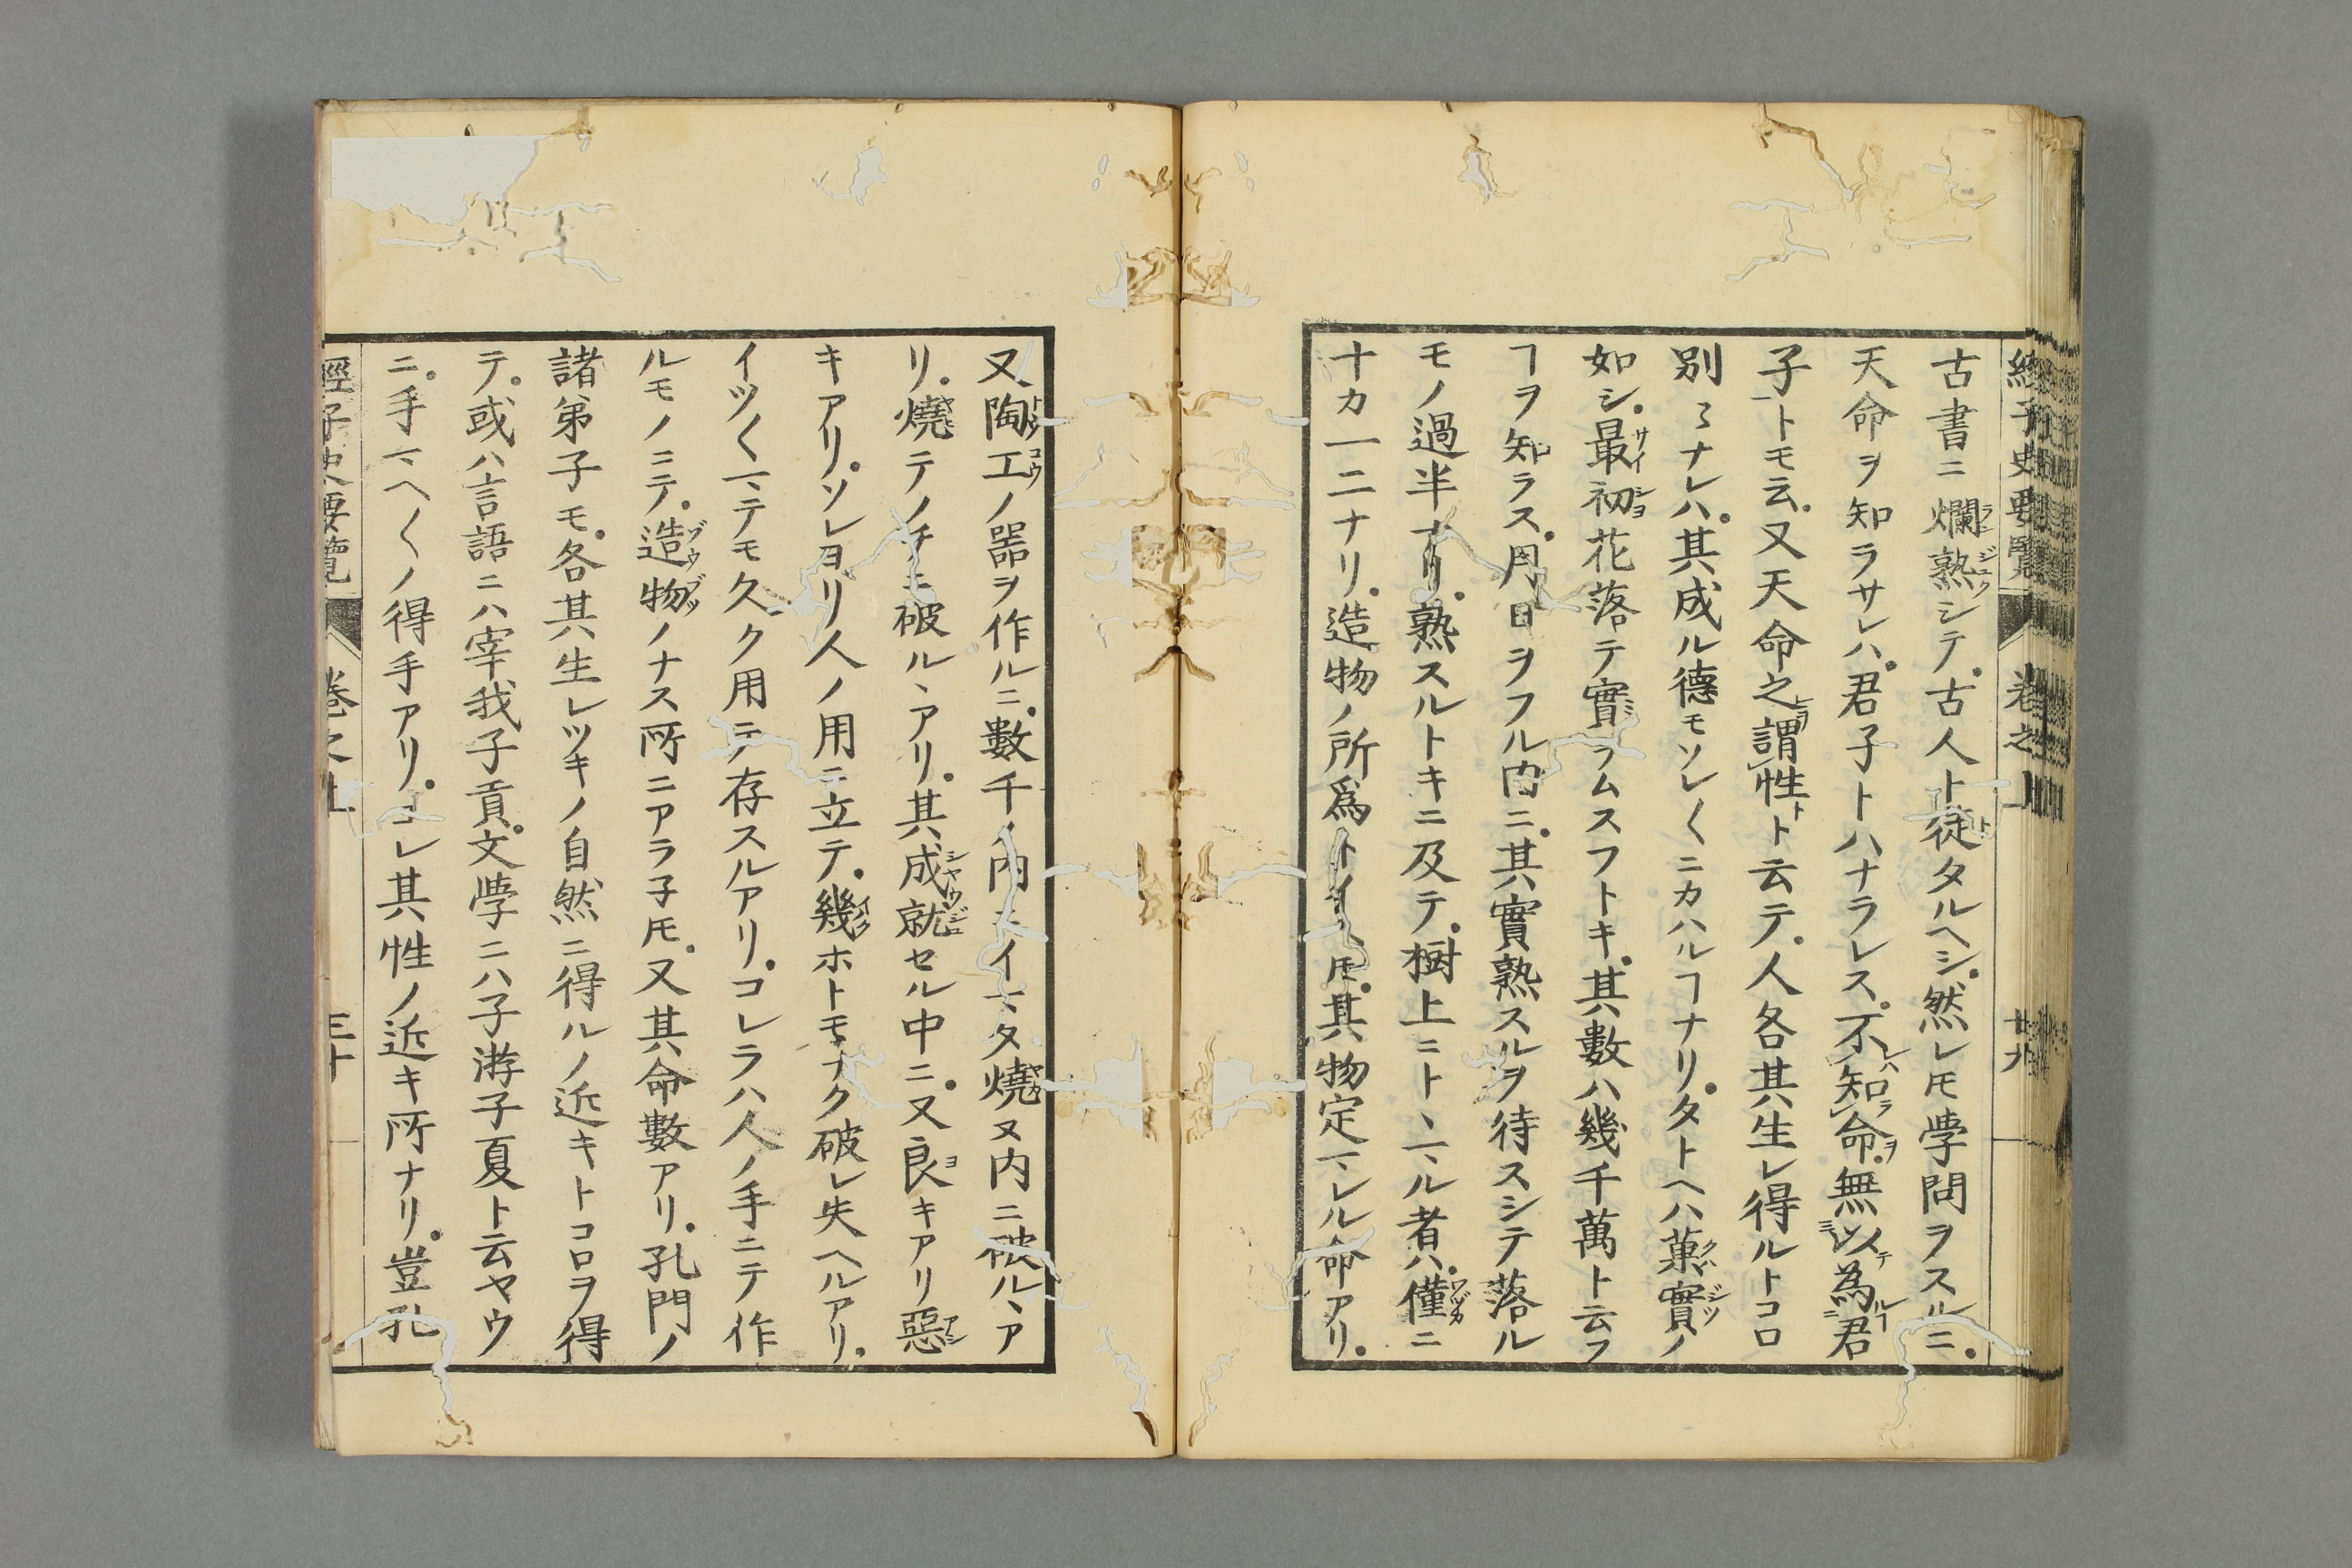 經子史要覽 卷之上 廿九
古書ニ爛熟シテ。古人ト徒タルヘシ。然レ𪜈学問ヲスルニ。
天命ヲ知ラサレハ。君子トハナラレス。不知命。無以為君
子トモ云。又天命之謂性ト云テ。人各其生レ得ルトコロ
別〻ナレハ。其成ル德モソレ〱ニカハルヿナリ。タトヘハ菓實ノ
如シ。最初花落テ實ヲムスフトキ。其數ハ幾千萬ト云フ
ヿヲ知ラス。月日ヲフル内ニ。其實熟スルヲ待スシテ落ル
モノ過半ナリ。熟スルトキニ及テ。樹上ニトヽマル者ハ。僅ニ
十カ一二ナリ。造物ノ所爲トイヘ𪜈。其物定マレル命アリ。
又陶工ノ器ヲ作ルニ。數千ノ内ニイマタ燒ヌ内ニ破ルヽア
リ。燒テノチニ破ルヽアリ。其成就セル中ニ。又良キアリ惡
キアリ。ソレヨリ人ノ用ニ立テ。幾ホトモナク破レ失ヘルアリ。
イツ〱マテモ久ク用テ存スルアリ。コレラハ人ノ手ニテ作
ルモノニテ。造物ノナス所ニアラ子𪜈。又其命數アリ。孔門ノ
諸弟子モ。各其生レツキノ自然ニ得ルノ近キトコロヲ得
テ。或ハ言語ニハ宰我子貢。文学ニハ子游子夏ト云ヤウ
ニ。手マヘ〱ノ得手アリ。コレ其性ノ近キ所ナリ。豈孔
經子史要覽 卷之上 三十